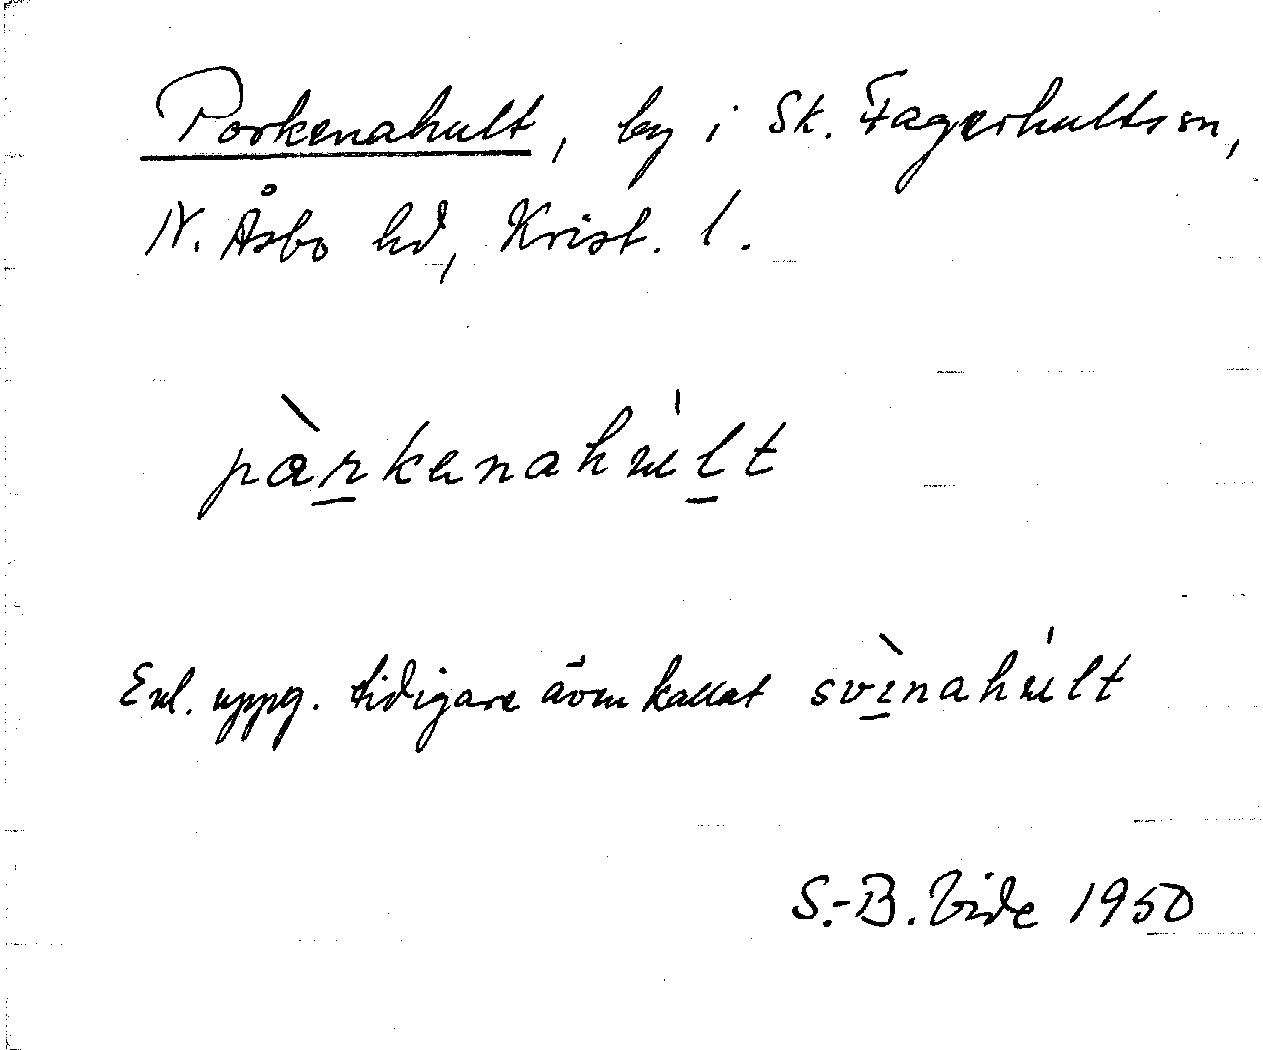 Porkenahult, by i Sk. Fagerhults sn,
N. Åsbo hd, Krist. l.
pàrkenahúlt
Enl. uppg. tidigare även kallat svìnahúlt
S.-B. Vide 1950